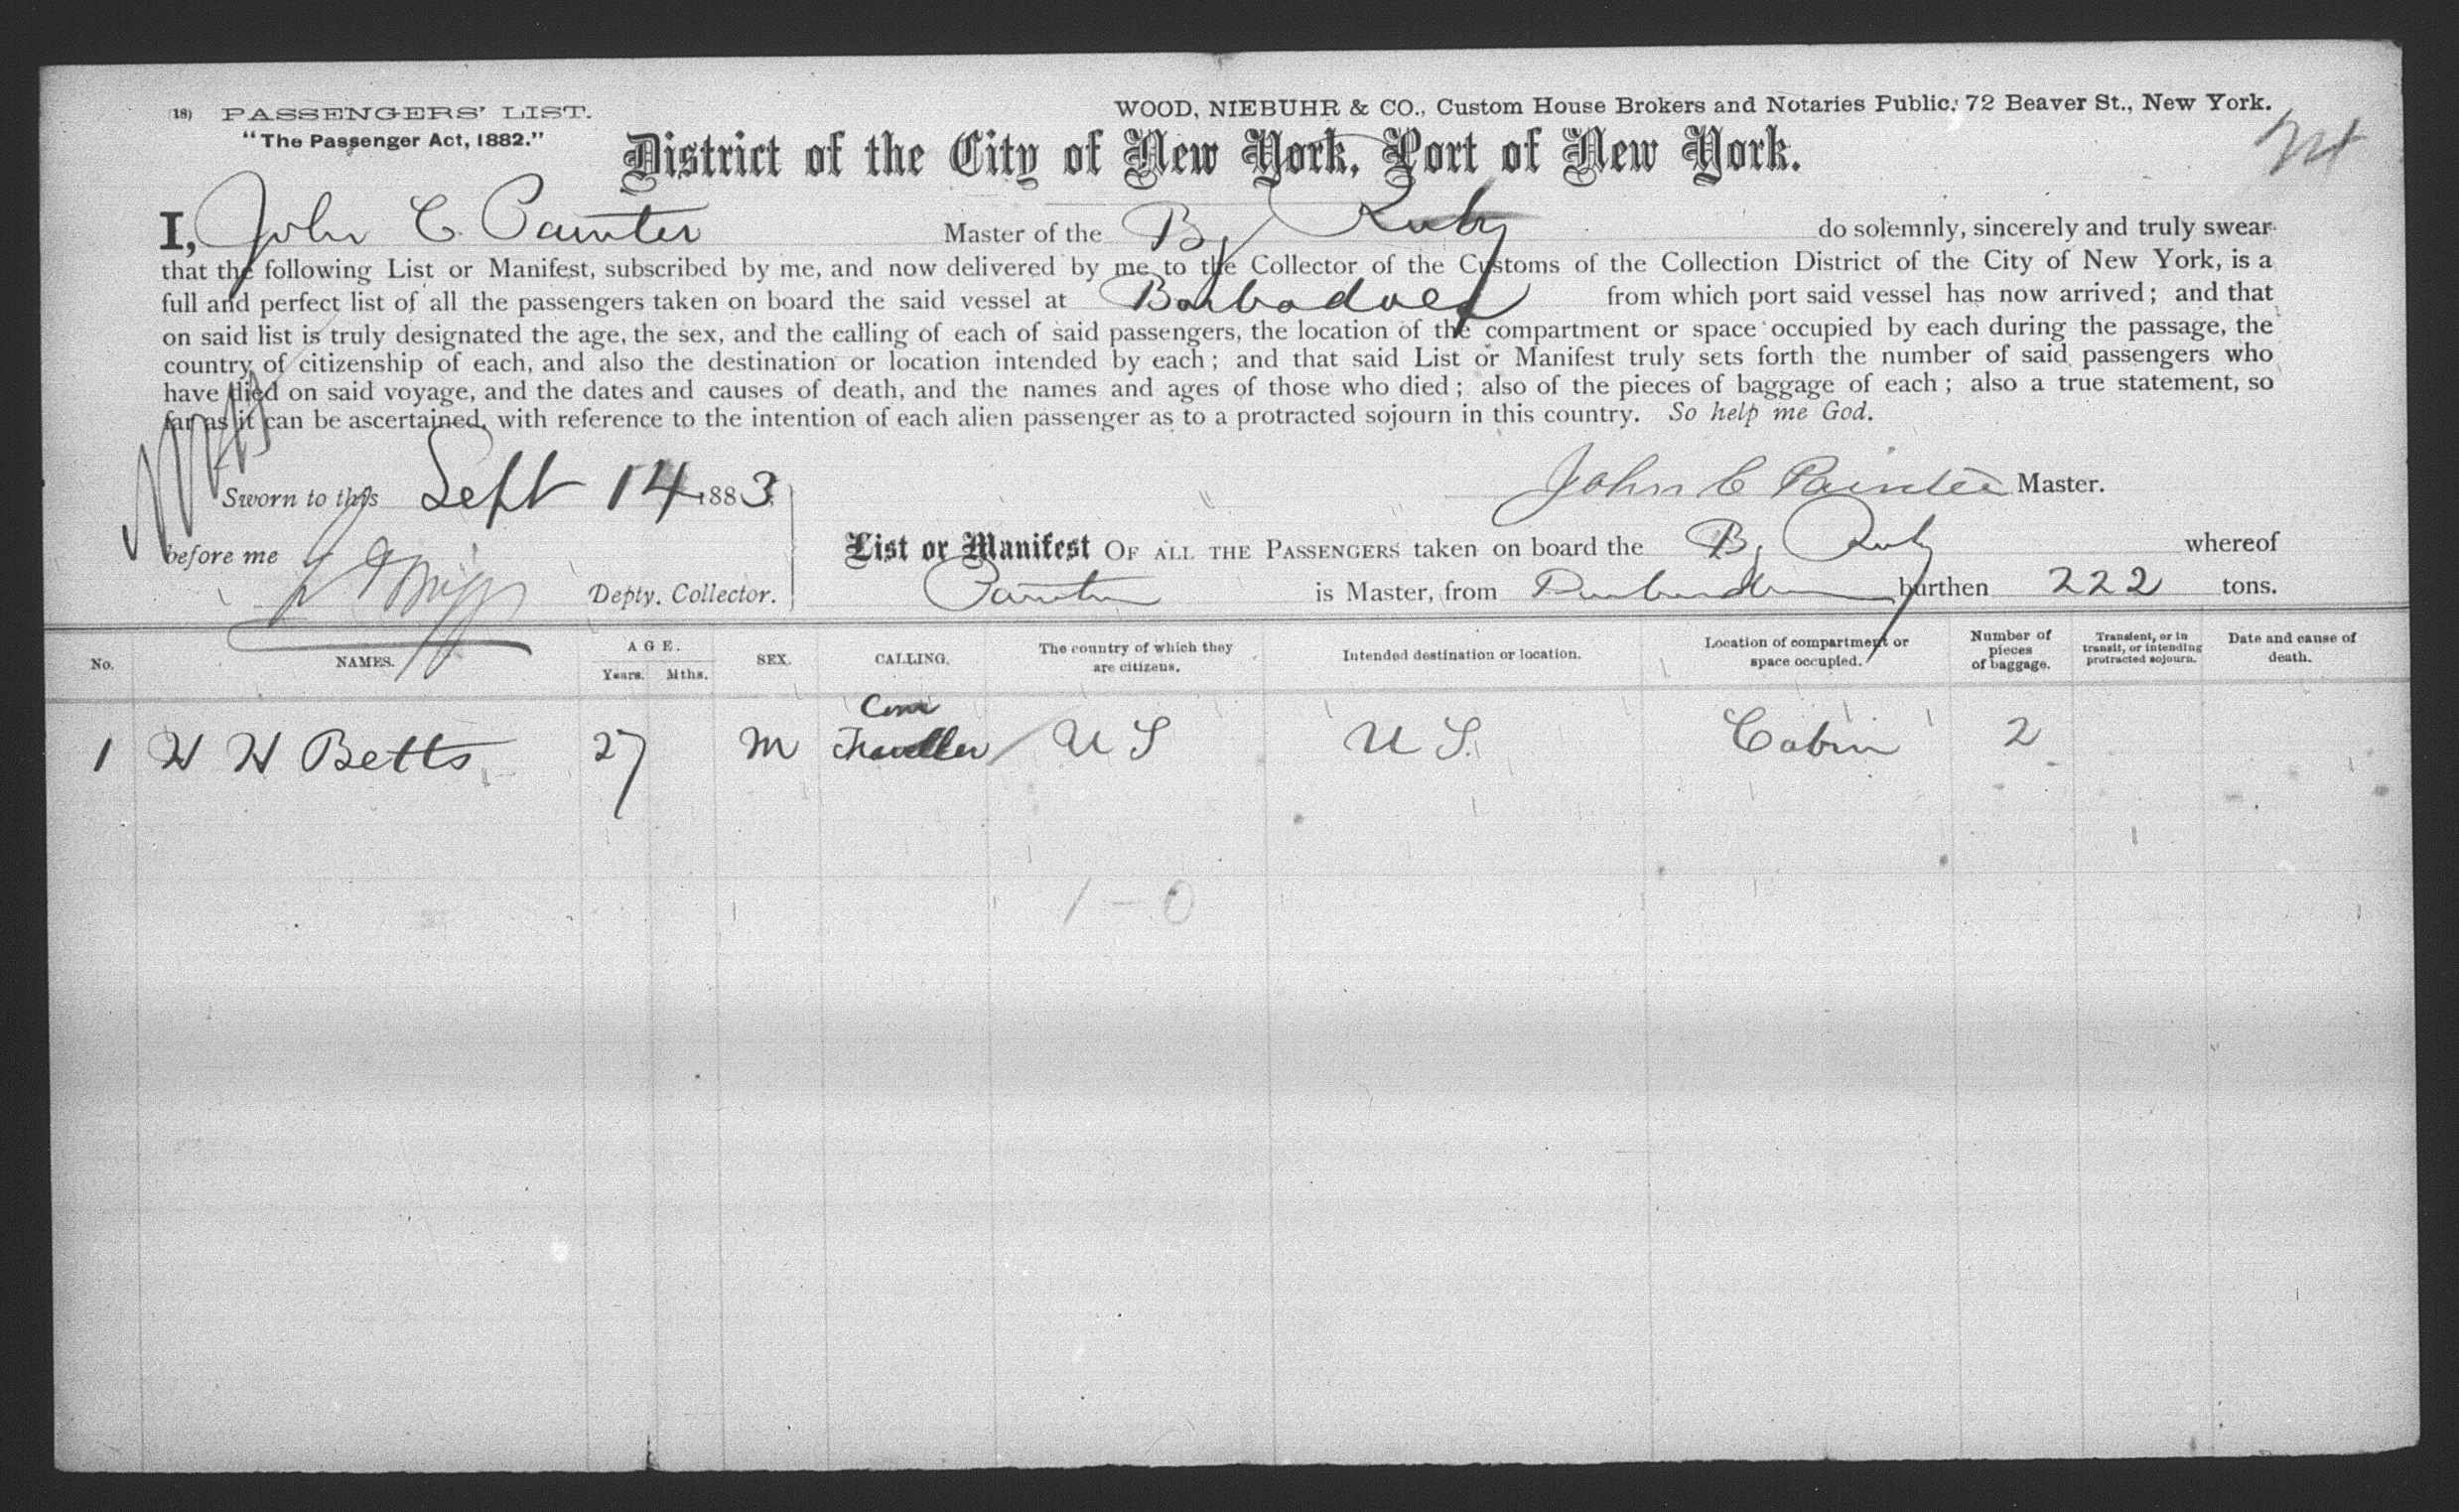 (18) PASSENGERS' LIST.
WOOD, NIEBUHR & CO., Custom House Brokers and Notaries Public, 72 Beaver St., New York.
"The Passenger Act, 1882."
District of the City of New York, Port of New York.
I, John C. Painter Master of the B, Ruby do solemnly, sincerely and truly swear
that the following List or Manifest, subscribed by me, and now delivered by me to the Collector of the Customs of the Collection District of the City of New York, is a
full and perfect list of all the passengers taken on board the said vessel at Barbadoes from which port said vessel has now arrived; and that
on said list is truly designated the age, the sex, and the calling of each of said passengers, the location of the compartment or space occupied by each during the passage, the
country of citizenship of each, and also the destination or location intended by each; and that said List or Manifest truly sets forth the number of said passengers who
have died on said voyage, and the dates and causes of death, and the names and ages of those who died; also of the pieces of baggage of each; also a true statement, so
far as it can be ascertained, with reference to the intention of each alien passenger as to a protracted sojourn in this country. So help me God.
Sworn to this Sept 14 1883
John C Painter Master.
before me Depty. Collector.
List or Manifest OF ALL THE PASSENGERS taken on board the B, Ruby whereof
Painter is Master, from Barbadoes burthen 222 tons.
No. NAMES. AGE. Years. Mths. SEX. CALLING. The country of which they are citizens. Intended destination or location. Location of compartment or space occupied. Number of pieces of baggage. Transient, or in transit, or intending protracted sojourn. Date and cause of death.
1 H H Betts 27 M Com Traveller U S U S. Cabin 2
1 - 0